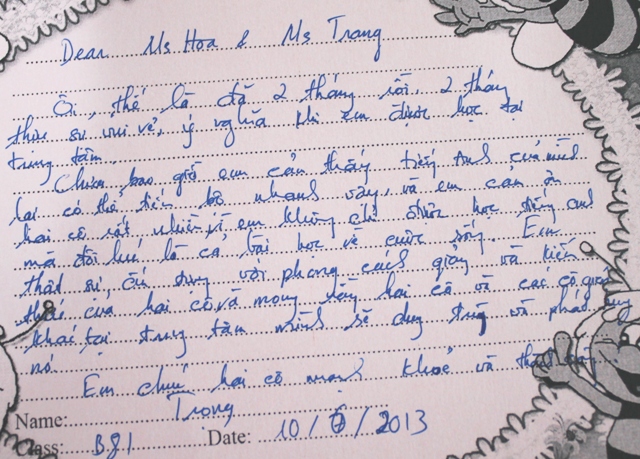 Dear Ms Hoa & Ms Trang
Ôi, thế là đã 2 tháng rồi, 2 tháng
thực sự vui vẻ, ý nghĩa khi em được học tại
trung tâm.
Chưa bao giờ em cảm thấy tiếng Anh của mình
lại có thể tiến bộ nhanh vậy, và em cảm ơn
hai cô rất nhiều vì em không chỉ được học tiếng anh
mà đôi lúc là cả bài học về cuộc sống. Em
thật sự ấn tượng với phong cách giảng và kiến
thức của hai cô và mong rằng hai cô và các cô giáo
khác tại trung tâm mình sẽ duy trì và phát huy
nó.
Em chúc hai cô mạnh khoẻ và
Name: Trọng
Class: B81 Date: 10/6/2013